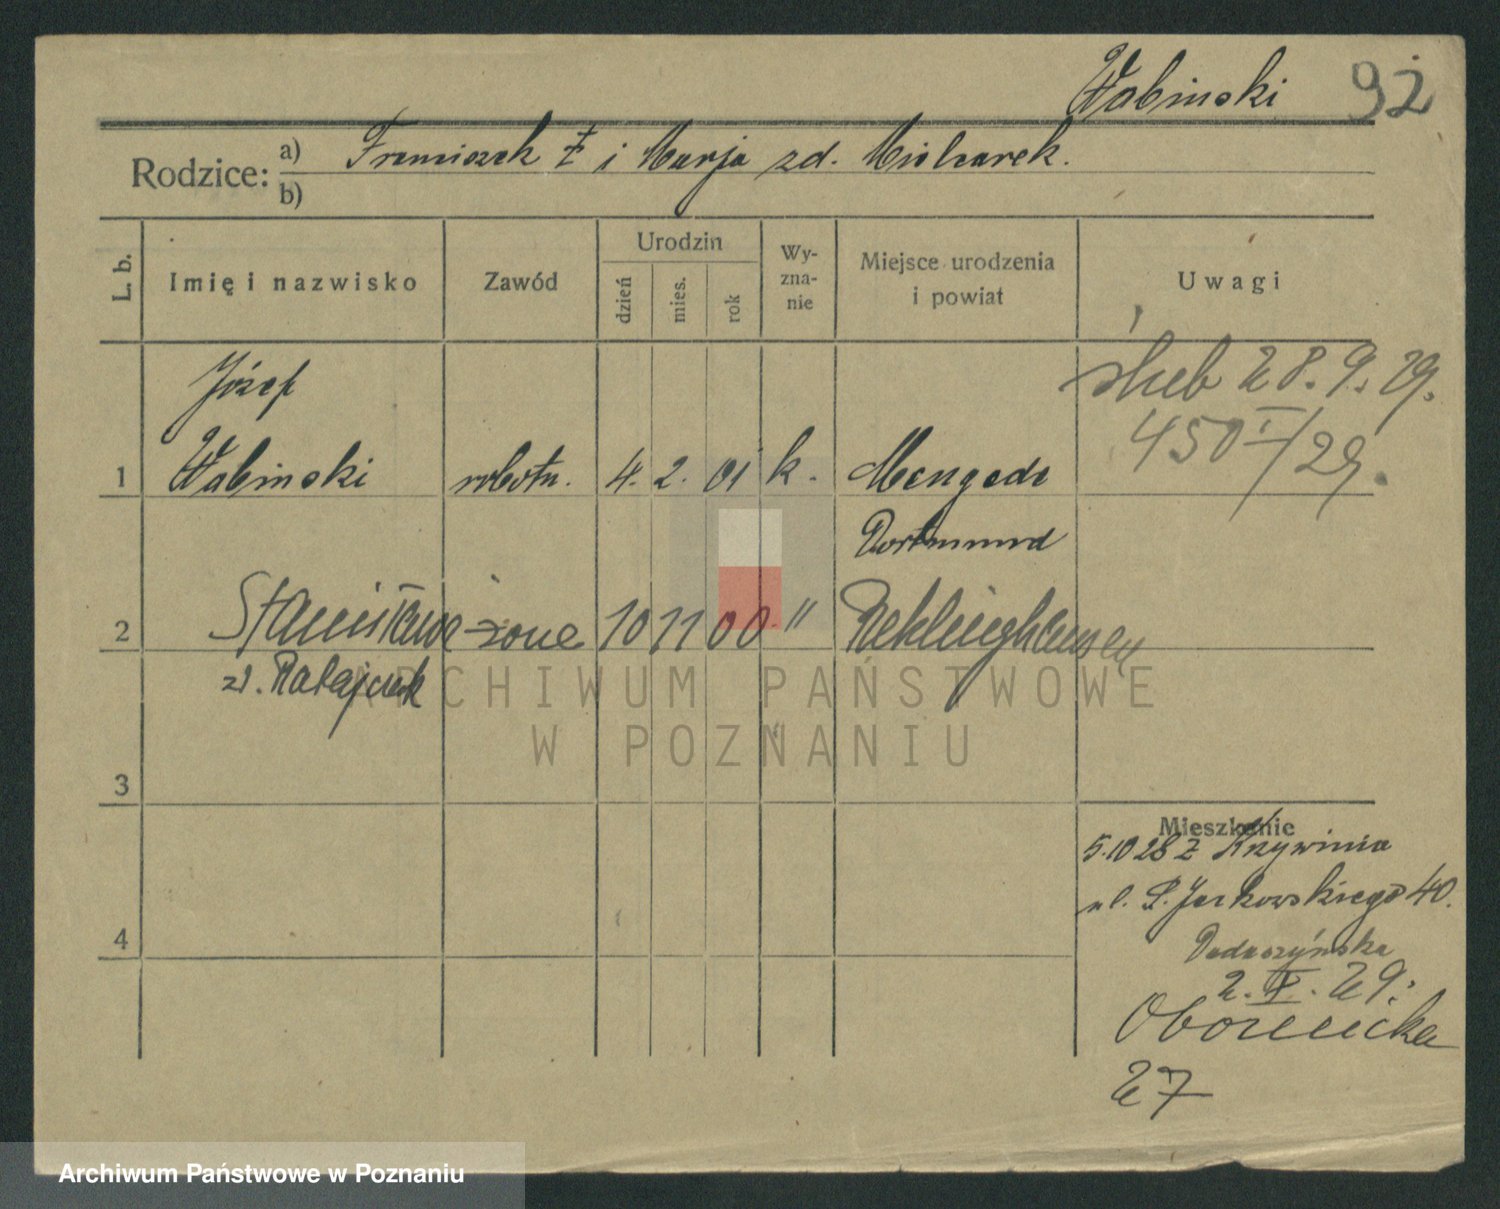 Wabinski 92
Rodzice: a) Franciszek Ł i Marja zd. Mielcarek.
b)
L. b. Imię i nazwisko Zawód Urodzin dzień mies. rok Wy-zna-nie Miejsce urodzenia i powiat Uwagi
ślub 28.9.29.
450 I/29.
Józef
1 Wabinski robotn. 4. 2. 01 k. Mengede
Dortmund
2 Stanisława żona 10 11 00 " Reklinghausen
zd. Ratajczak
ARCHIWUM PAŃSTWOWE
W POZNANIU
3
Mieszkanie
5.10 28 z Krzywinia
ul. Jarkowskiego 40.
4
2. X. 29.
Obornicka
27
Archiwum Państwowe w Poznaniu